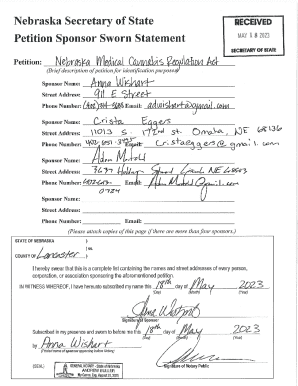 Nebraska Secretary of State
Petition Sponsor Sworn Statement
RECEIVED
MAY 18 2023
SECRETARY OF STATE
Petition: Nebraska Medical Cannabis Regulation Act
(Brief description of petition for identification purposes)
Sponsor Name: Anna Wishart
Street Address: 911 E Street
Phone Number: Email:
Sponsor Name: Crista Eggers
Street Address: 11013 S. 172nd st. Omaha, NE 68136
Phone Number: Email: cristaeggers@gmail.com
Sponsor Name: Adam
Street Address:
Phone Number: Email:
Sponsor Name:
Street Address:
Phone Number: Email:
(Please attach copies of this page if there are more than four sponsors.)
STATE OF NEBRASKA )
) ss.
COUNTY OF Lancaster )
I hereby swear that this is a complete list containing the names and street addresses of every person,
corporation, or association sponsoring the aforementioned petition.
IN WITNESS WHEREOF, I have hereunto subscribed my name this 18th day of May 2023
(Day) (Month) (Year)
Signature of Sponsor
Subscribed in my presence and sworn to before me this 18th day of May 2023
(Day) (Month) (Year)
by Anna Wishart
(Printed name of sponsor appearing before notary)
(SEAL)
GENERAL NOTARY - State of Nebraska
Signature of Notary Public